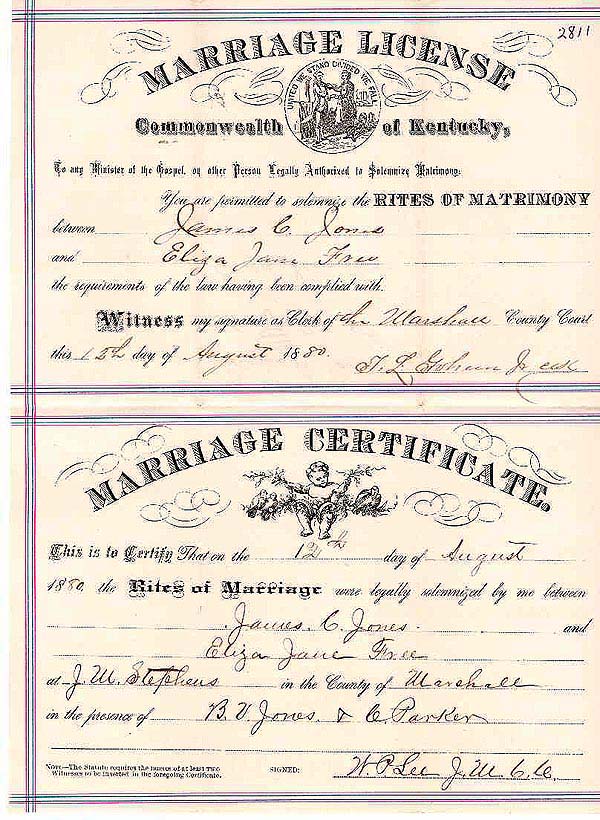 2811
MARRIAGE LICENSE
UNITED WE STAND DIVIDED WE FALL
Commonwealth of Kentucky,
To any Minister of the Gospel, or other Person Legally Authorized to Solemnize Matrimony:
You are permitted to solemnize the RITES OF MATRIMONY
between James C. Jones
and Eliza Jane Free
the requirements of the law having been complied with.
Witness my signature as Clerk of the Marshall County Court
this 12th day of August 1880.
MARRIAGE CERTIFICATE.
This is to Certify That on the 12th day of August
1880, the Rites of Marriage were legally solemnized by me between
James C. Jones and
Eliza Jane Free
at J. M. Stephens in the County of Marshall
in the presence of B. V. Jones & C. Parker
NOTE—The Statute requires the names of at least TWO
Witnesses to be inserted in the foregoing Certificate.
SIGNED: W. P. Lee J. M. C. C.